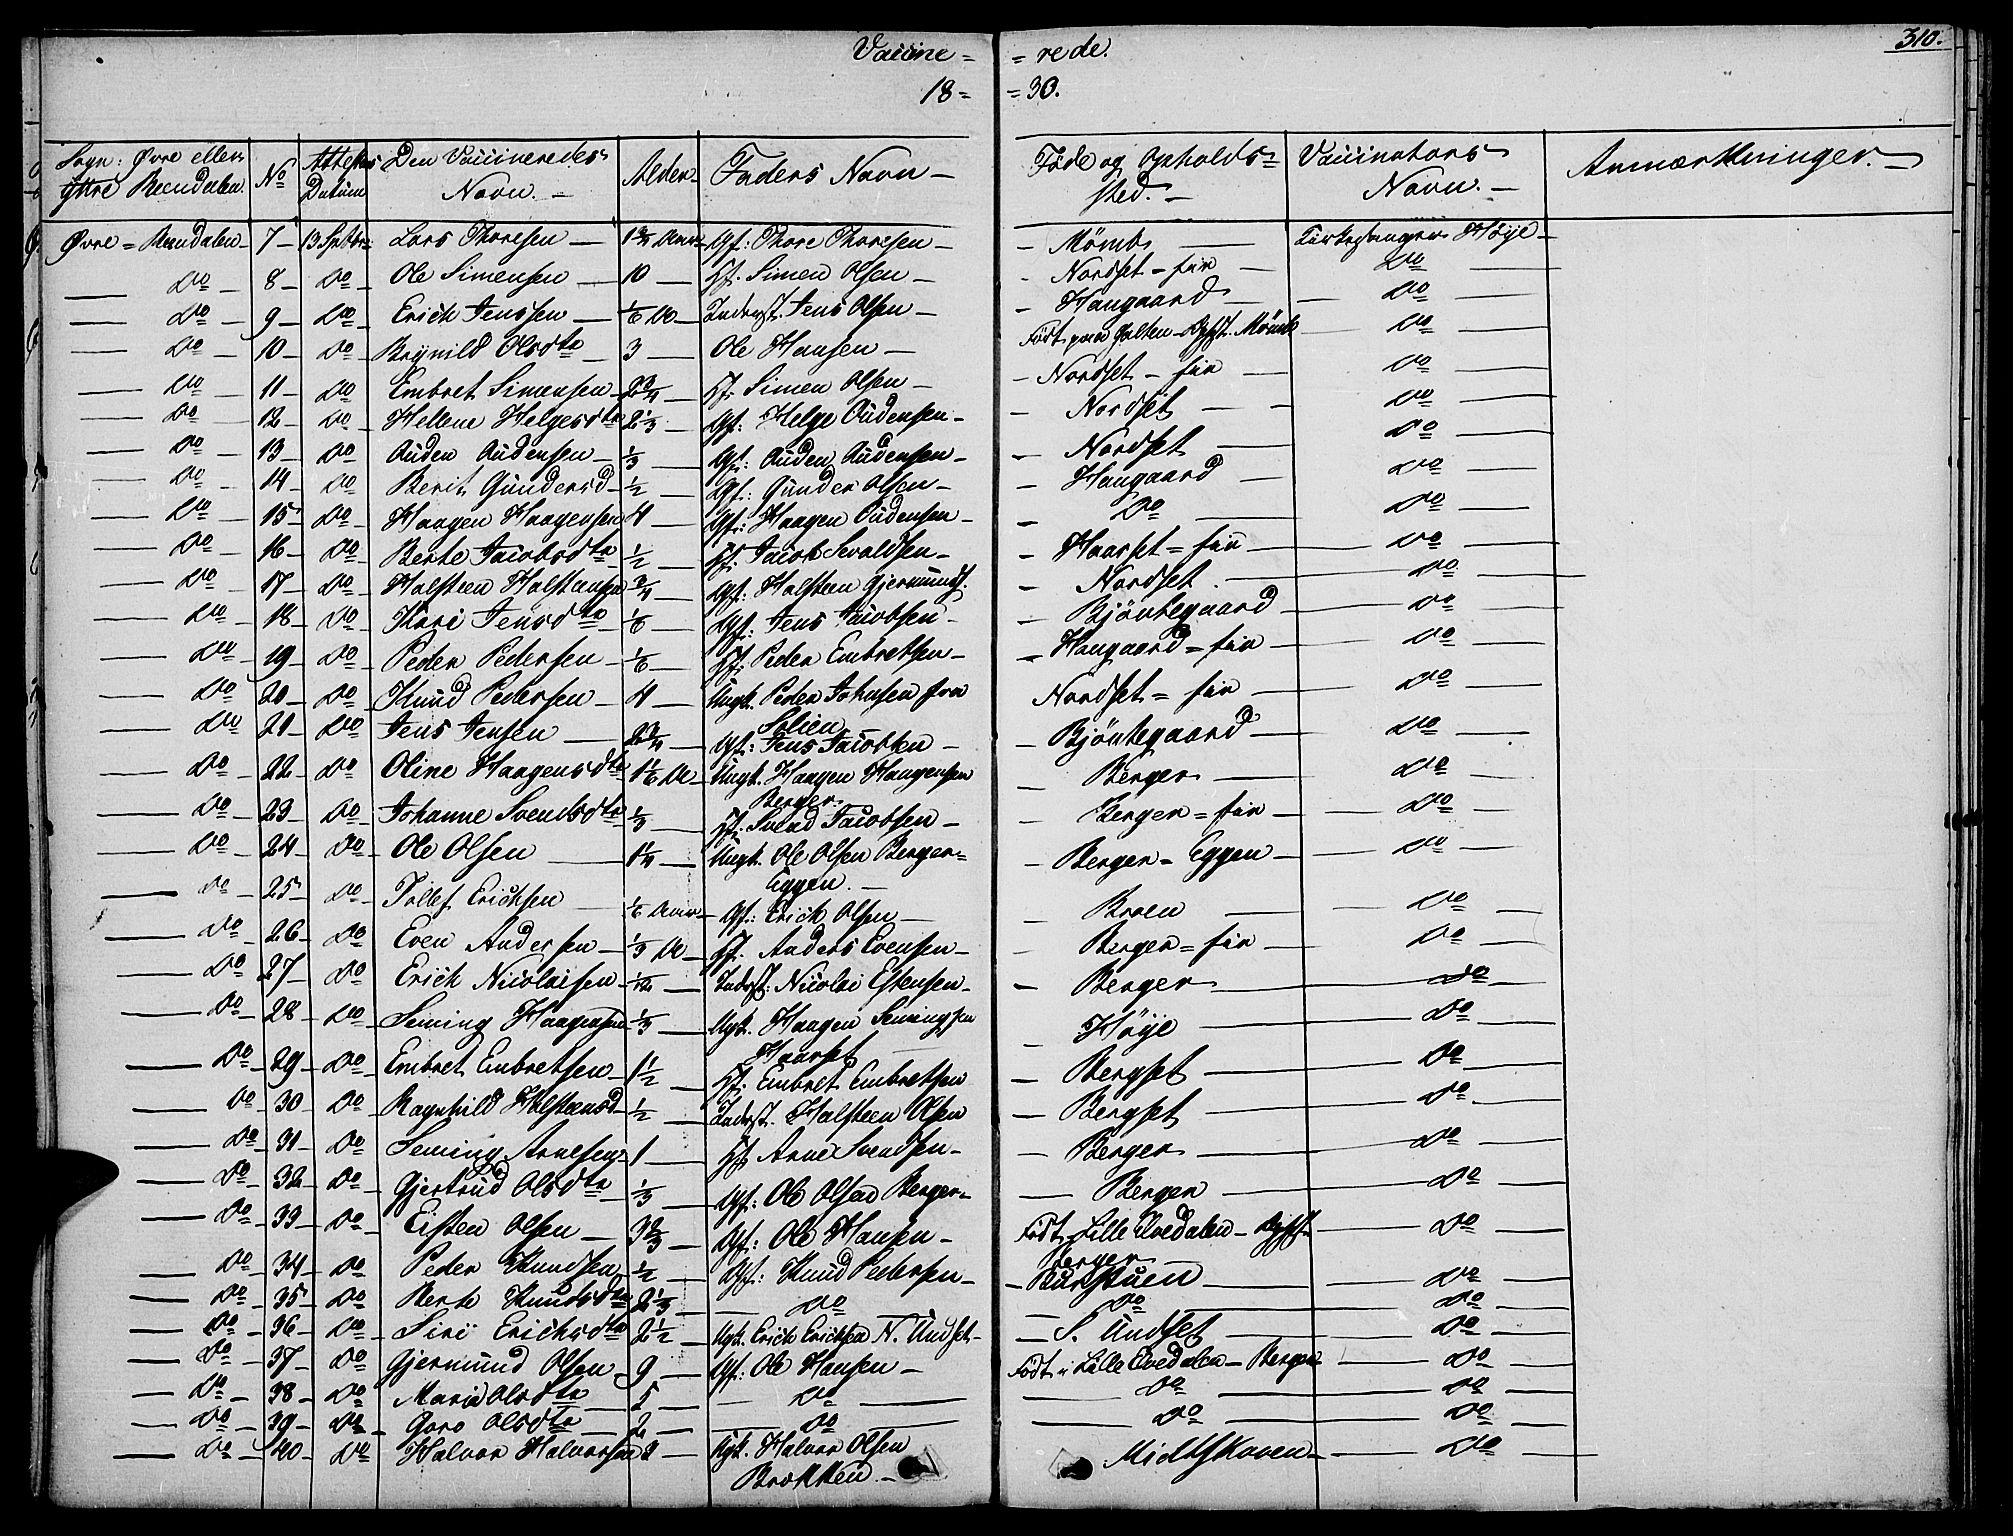 310.
Vaccine = = rede.
18 = = 30.
Sogn: Øvre eller ytre Rendalen. No Attestens Datum Den Vaccineredes Navn. Alder Faders Navn Føde og Opholds= sted. Vaccinators Navn. Anmærkninger.
Øvre = Rendalen 7 13 Septbr Lars Thoresen Gf: Thore Thoresen Mömb Kirkesanger Höye
Do 8 Do Ole Simensen 10 Hf. Simen Olsen Nordset = Do
Do 9 Do Erich Jenssen 1/6 Do Inderst. Jens Olsen Haugaard Do
Do 10 Do Brynild Olsdtr 3 Ole Hansen Födt paa Do
Do 11 Do Embret Simensen 2 3/4 Hf. Simen Olsen Nordset Do
Do 12 Do Hellene Helgesdtr 2 1/3 Gf: Helge Oudensen Nordset Do
Do 13 Do Ouden Oudensen 1/3 Gf: Ouden Oudensen Nordset Do
Do 14 Do Berit Gundersd 1/2 Gf: Gunder Olsen Haugaard Do
Do 15 Do Haagen Haagensen 4 Gf: Haagen Oudensen Do Do
Do 16 Do Berte Jacobsdtr 1/2 Hf. Jacob Haarset = Do
Do 17 Do Halsteen Halstensen 3/4 Gf. Halsteen Gjermunds. Nordset Do
Do 18 Do Kari Jensdtr 1/6 Gf: Jens Jacobsen Bjöntegaard Do
Do 19 Do Peder Pedersen 1/6 Hf. Peder Embretsen Haugaard = Do
Do 20 Do Knud Pedersen 4 Ungk. Peder Johnsen fra Nordset = Do
Do 21 Do Jens Jensen 2 3/4 Gf: Jens Jacobsen Bjöntegaard Do
Do 22 Do Oline Haagensdtr 1 1/6 Do Ungk. Haagen Haagensen Berger Berger Do
Do 23 Do Johanne Svendsdtr 1/3 Hf. Svend Jacobsen Berger = Do
Do 24 Do Ole Olsen 1 1/4 Ungk. Ole Olsen Berger= Eggen. Berger = Eggen Do
Do 25 Do Tollef Erichsen 1/6 Gf: Erich Olsen Broen Do
Do 26 Do Even Andersen 1/3 Do Hf. Anders Evensen Berger = Do
Do 27 Do Erich Nicolaisen 1/12 Inderst. Nicolai Estensen Berger Do
Do 28 Do Seming Haagensen 1/3 Ugk. Haagen Semingsen Haarset Höye Do
Do 29 Do Embret Embretsen 1 1/2 Hf. Embret Embretsen Bergset Do
Do 30 Do Ragnhild Halsteensd 1/2 Inderst. Halsteen Olsen Bergset Do
Do 31 Do Seming Arnesen 1 Hf. Arne Svendsen Berger Do
Do 32 Do Gjertrud Olsdtr 1/3 Gf: Ole Olsen Berger= Berger Do
Do 33 Do Eisten Olsen 3 2/3 Gf: Ole Hansen Födt Lille Elvedalen Berger Do
Do 34 Do Peder Knudsen 1/2 Gf: Knud Pedersen Do
Do 35 Do Berte Knudsdtr 2 1/3 Do Do Do
Do 36 Do Siri Erichsdtr 2 1/2 Ugk. Erich Erichsen N. Undset S. Undset Do
Do 37 Do Gjermund Olsen 9 Gf: Ole Hansen Födt i Lille Elvedalen Berger Do
Do 38 Do Maria Olsdtr 5 Do Do Do
Do 39 Do Goro Olsdtr 2 Do Do Do
Do 40 Do Halvor Halvorsen Ugk. Halvor Olsen Brækken Midtskoven Do